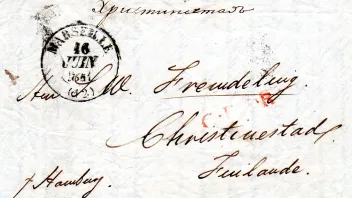 Христинестадъ
MARSEILLE
16
JUIN
1841
(62)
S. W. Fremdeling.
Christinestad,
Finlande.
p Hamburg.